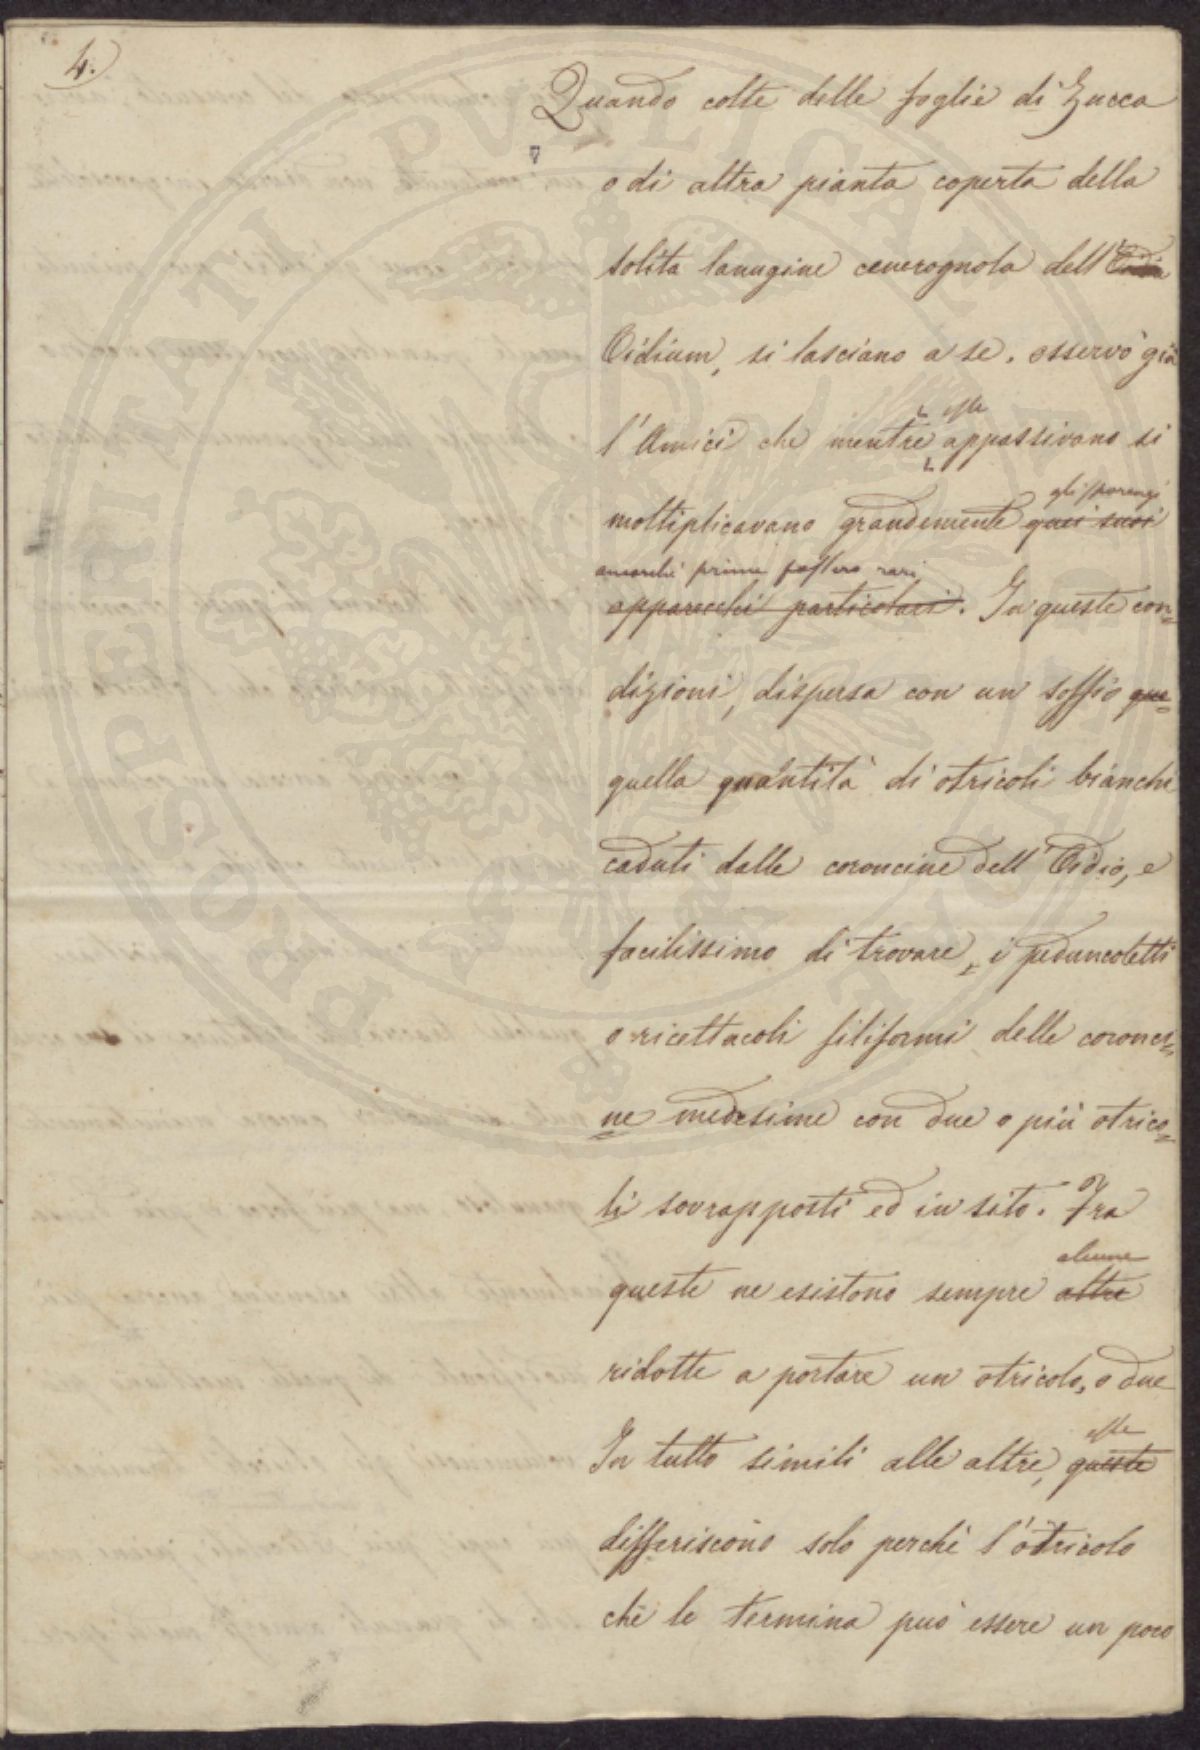 4.
Quando colte delle foglie di Zucca
o di altra pianta coperta della
solita lanugine cenerognola dell'
Oidium, si lasciano a se, osservò già
esse
l'Amici che mentre appassivano si
gli sporangi
moltiplicavano grandemente quei suoi
ancorchè prima fossero rari
apparecchi particolari. In queste con=
dizioni, dispersa con un soffio que=
quella quantità di otricoli bianchi
caduti dalle coroncine dell'Oidio, e
facilissimo di trovare, i peduncoletti
o ricettacoli filiformi delle coronci=
ne medesime con due o più otrico=
li sovrapposti ed in sito. Fra
alcune
queste ne esistono sempre altre
ridotte a portare un otricolo, o due
esse
In tutto simili alle altre, queste
differiscono solo perchè l'otricolo
che le termina può essere un poco
PROSPERITATI PVBLICAE AVGENDAE